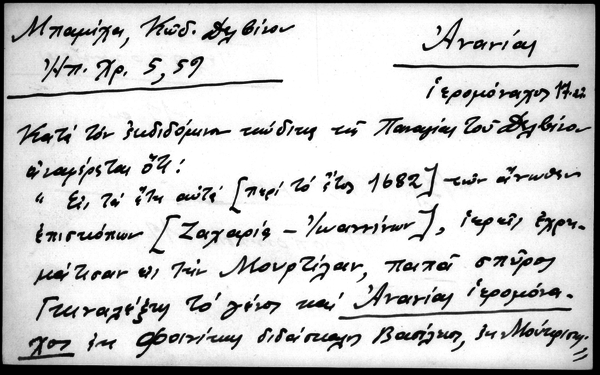 Μπαμίχα, Κώδ. Δελβίνου
Ἠπ. Χρ. 5, 59
Ἀνανίας
ἱερομόναχος 17
Κατὰ τὸν ἐκδιδόμενον κώδικα τῆς Παναγίας τοῦ Δελβίνου
ἀναφέρεται ὅτι:
" Εἰς τὰ ἔτη αὐτὰ [περὶ τὸ ἔτος 1682] τῶν ἄνωθεν
ἐπισκόπων [Ζαχαρία - Ἰωαννίνων], ἱερεῖς ἐχρη-
μάτισαν εἰς τὴν Μουρτίλαν, παπᾶ σπῦρος
τὸ γένος καὶ Ἀνανίας ἱερομόνα-
χος ἐκ Φοινίκης διδάσκαλος Βασίλειος, ἐκ